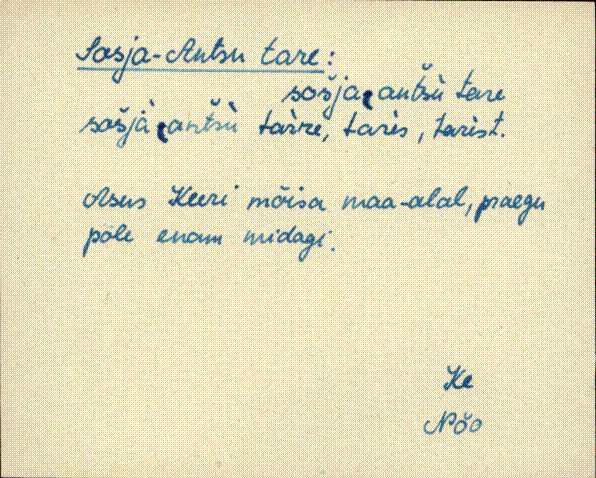 Sosja-Antsu tare:
sošja, antšù tare
sošjà, antšù tàrre, tarìs, tarìst.
Asus Keeri mõisa maa-alal, praegu
pole enam midagi.
Ke
Nõo